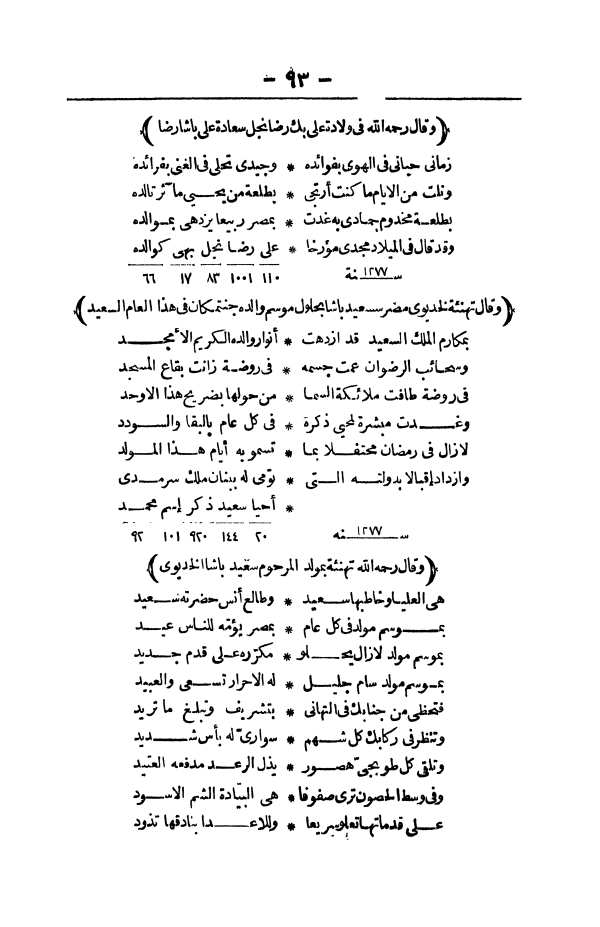 - ٩٣ -
﴿ وقال رحمه الله فى ولادة على بك رضا نجل سعادة على باشا رضا ﴾
زمانى حبانى فى الهوى بفوائده * وجيدى تحلى فى الغنى بفرائده
ونلت من الايام ما كنت أرتجى * بطلعة من يحيى مآثر تالده
بطلعة مخدوم جمادى به غدت * بمصر ربيعا يزدهى بموالده
وقد قال فى الميلاد مجدى مؤرخا * على رضا نجل بهى كوالده
سنة ١٢٧٧ ١١٠ ١٠٠١ ٨٣ ١٧ ٦٦
﴿ وقال تهنئة لخديوى مصر سعيد باشا بحلول موسم والده جنتمكان فى هذا العام السعيد ﴾
بمكارم الملك السعيد قد ازدهت * أنوار والده الكريم الأمجد
وسحائب الرضوان عمت جسمه * فى روضة زانت بقاع المسجد
فى روضة طافت ملائكة السما * من حولها بضريح هذا الاوحد
وغدت مبشرة لمحيى ذكره * فى كل عام بالبقا والسودد
لازال فى رمضان محتفلا بما * تسمو به أيام هذا المولد
وازداد إقبالا بدولته التى * نؤمى له ببنان ملك سرمدى
* أحيا سعيد ذكر إسم محمد
سنه ١٢٧٧ ٢٠ ١٤٤ ٩٢٠ ١٠١ ٩٢
﴿ وقال رحمه الله تهنئة بمولد المرحوم سعيد باشا الخديوى ﴾
هى العليا وخاطبها سعيد * وطالع أنس حضرته سعيد
بموسم مولد فى كل عام * بمصر يؤمه للناس عيد
بموسم مولد لازال يحلو * مكرره على قدم جديد
بموسم مولد سام جليل * له الاحرار تسعى والعبيد
فتحظى من جنابك فى التهانى * بتشريف وتبلغ ما تريد
وتنظر فى ركابك كل شهم * سوارى له بأس شديد
وتلقى كل طوبجى هصور * يذل الرعد مدفعه العتيد
وفى وسط الحصون ترى صفوفا * هى البيادة الشم الاسود
على قدماتها تعلو سريعا * وللاعدا بنادقها تذود